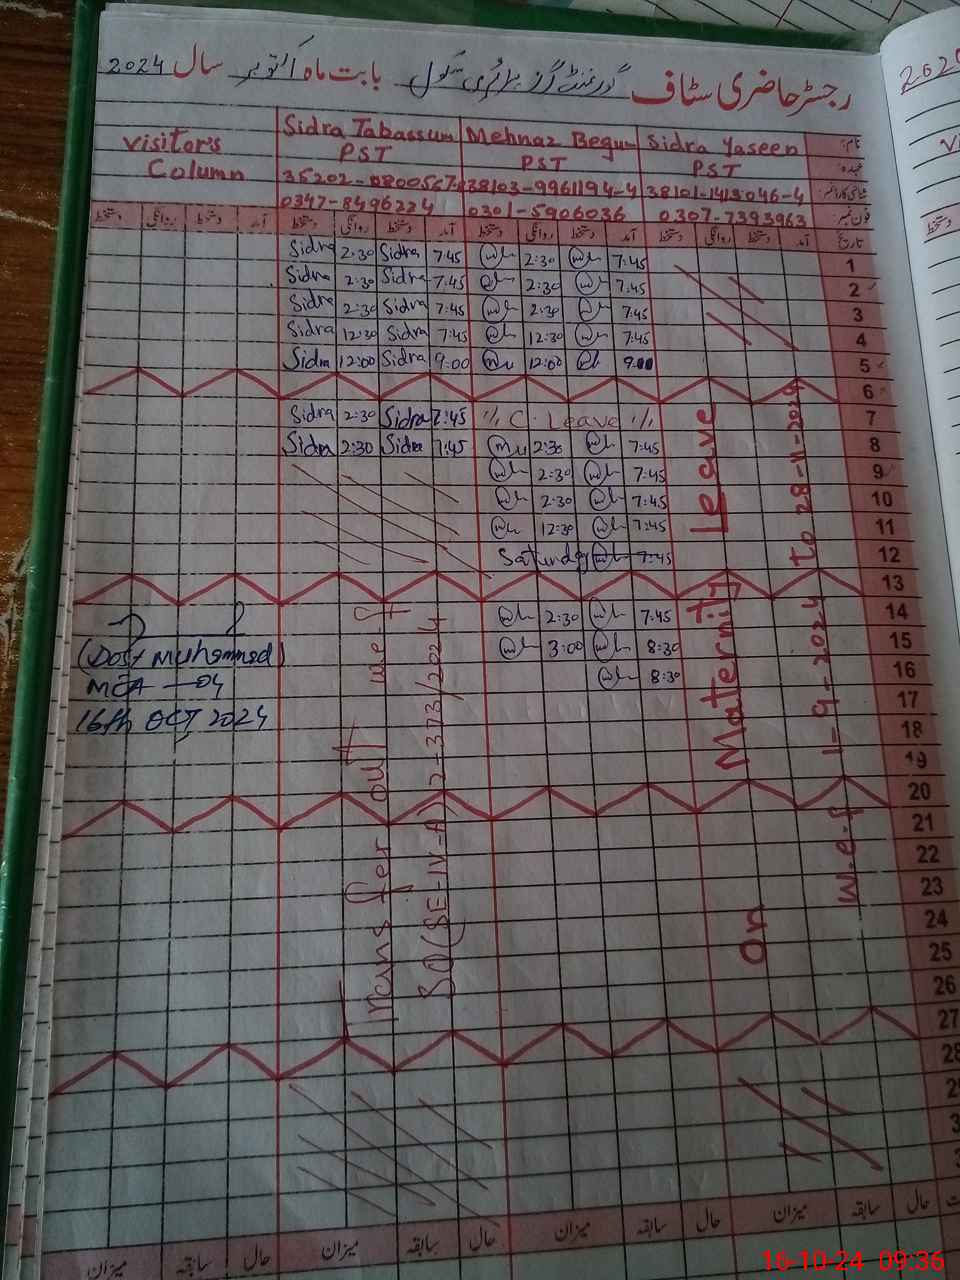 رجسٹر حاضری سٹاف گورنمنٹ گرلز پرائمری سکول بابت ماہ اکتوبر سال 2024
نام: Sidra Yaseen Mehnaz Begum Sidra Tabassum visitor's
عہدہ: PST PST PST Column
شناختی کارڈ نمبر: 38101-1413046-4 38103-9961194-4
فون نمبر: 0307-7393963 0301-5906036 0347-8496224
تاریخ آمد دستخط روانگی دستخط آمد دستخط روانگی دستخط آمد دستخط روانگی دستخط آمد دستخط روانگی دستخط
Sidra 2:30 Sidra 7:45 2:30 7:45 1
Sidra 2:30 Sidra 7:45 2:30 7:45 2
Sidra 2:30 Sidra 7:45 2:30 7:45 3
Sidra 12:30 Sidra 7:45 12:30 7:45 4
Sidra 12:00 Sidra 9:00 12:00 9:00 5
6
Sidra 2:30 Sidra 7:45 C. Leave 7
Sidra 2:30 Sidra 7:45 2:30 7:45 8
2:30 7:45 9
2:30 7:45 10
12:30 7:45 11
Saturday 7:45 12
13
2:30 7:45 14
3:00 8:30 15
8:30 16
17
18
19
20
21
22
23
24
25
26
27
28
(Dost Muhammad)
MEA - 04
16th OCT 2024
Transfer out w.e.f
SO(SE-IV-A)2-373/2024
On Maternity Leave
w.e.f 1-9-2024 to 28-11-2024
حال سابقہ میزان حال سابقہ میزان حال سابقہ میزان حال سابقہ میزان
16-10-24 09:36